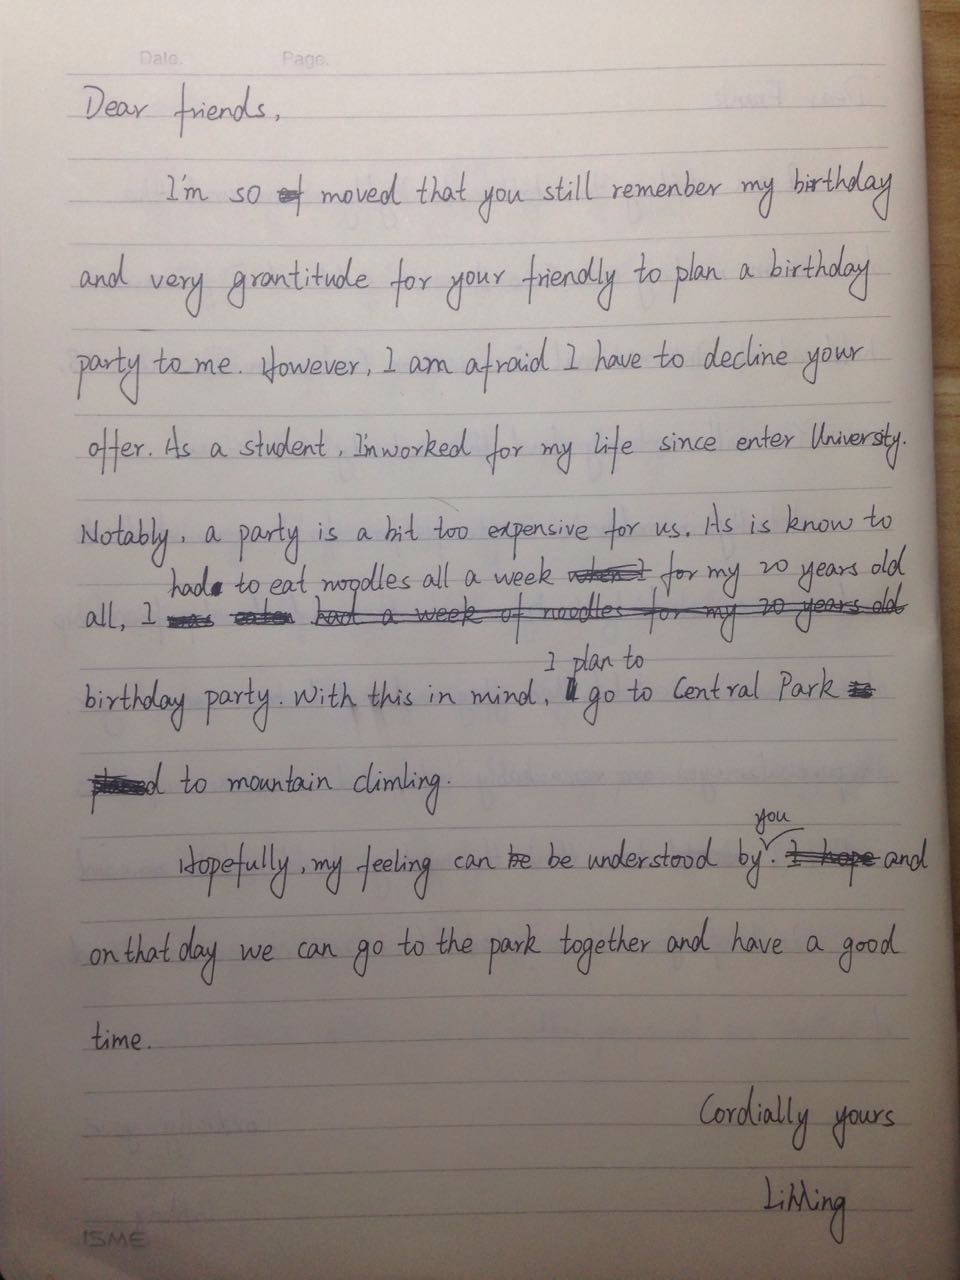 Date. Page.
Dear friends,
I'm so moved that you still remenber my birthday
and very grantitude for your friendly to plan a birthday
party to me. However, I am afraid I have to decline your
offer. As a student, I'm worked for my life since enter University.
Notably, a party is a bit too expensive for us. As is know to
had to eat noodles all a week for my 20 years old
all, I
I plan to
birthday party. With this in mind, go to Central Park
to mountain climling.
you
Hopefully, my feeling can be understood by. and
on that day we can go to the park together and have a good
time.
Cordially yours
LiMing
ISME